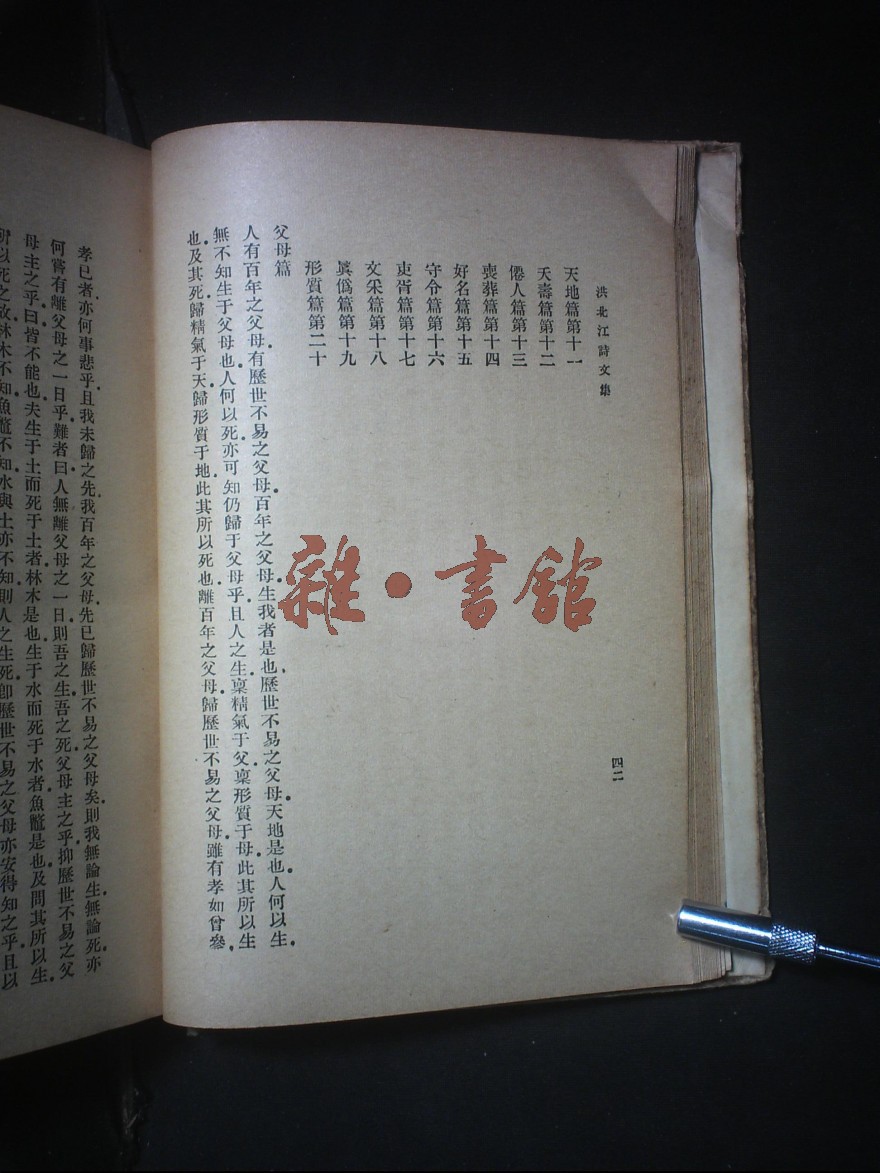 洪北江詩文集
四二
天地篇第十一
夭壽篇第十二
僊人篇第十三
喪葬篇第十四
好名篇第十五
守令篇第十六
吏胥篇第十七
文采篇第十八
眞僞篇第十九
形質篇第二十
父母篇
人有百年之父母有歷世不易之父母百年之父母生我者是也歷世不易之父母天地是也人何以生
無不知生于父母也人何以死亦可知仍歸于父母乎且人之生稟精氣于父稟形質于母此其所以生
也及其死歸精氣于天歸形質于地此其所以死也離百年之父母歸歷世不易之父母雖有孝如曾參
孝已者亦何事悲乎且我未歸之先我百年之父母先已歸歷世不易之父母矣則我無論生無論死亦
何嘗有離父母之一日乎難者曰人無離父母之一日則吾之生吾之死父母主之乎抑歷世不易之父
母主之乎曰皆不能也夫生于土而死于土者林木是也生于水而死于水者魚鼈是也及問其所以生
所以死之故林木不知魚鼈不知水與土亦不知則人之生死卽歷世不易之父母亦安得知之乎且以
雜·書館